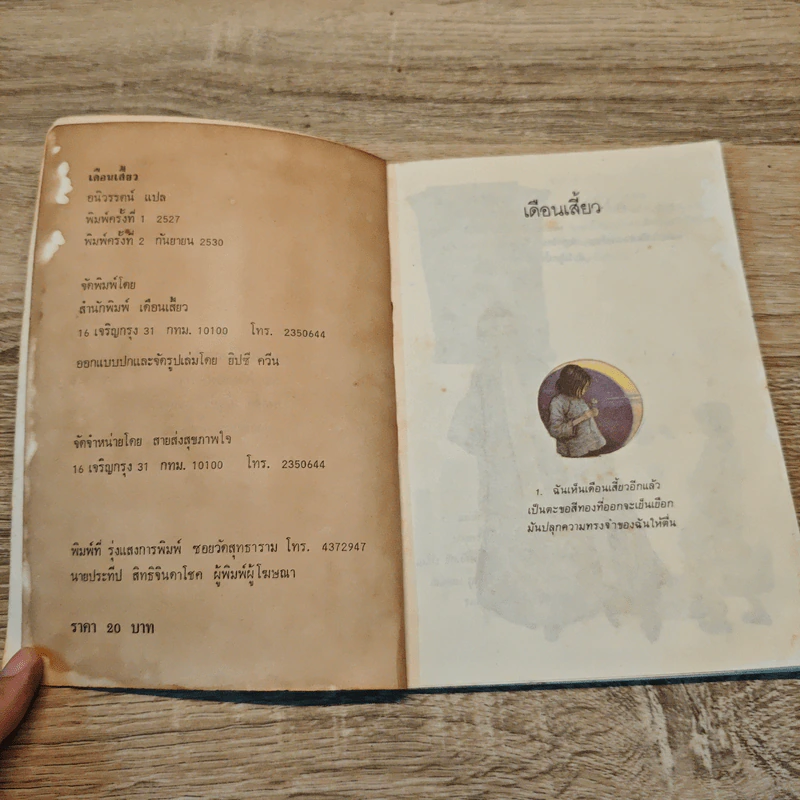 เดือนเสี้ยว
อนิวรรตน์ แปล
พิมพ์ครั้งที่ 1 2527
พิมพ์ครั้งที่ 2 กันยายน 2530
จัดพิมพ์โดย
สำนักพิมพ์ เดือนเสี้ยว
16 เจริญกรุง 31 กทม. 10100 โทร. 2350644
ออกแบบปกและจัดรูปเล่มโดย ยิปซี ควีน
จัดจำหน่ายโดย สายส่งสุขภาพใจ
16 เจริญกรุง 31 กทม. 10100 โทร. 2350644
พิมพ์ที่ รุ่งแสงการพิมพ์ ซอยวัดสุทธาราม โทร. 4372947
นายประทีป สิทธิจินดาโชค ผู้พิมพ์ผู้โฆษณา
ราคา 20 บาท
เดือนเสี้ยว
1. ฉันเห็นเดือนเสี้ยวอีกแล้ว
เป็นตะขอสีทองที่ออกจะเย็นเยือก
มันปลุกความทรงจำของฉันให้ตื่น